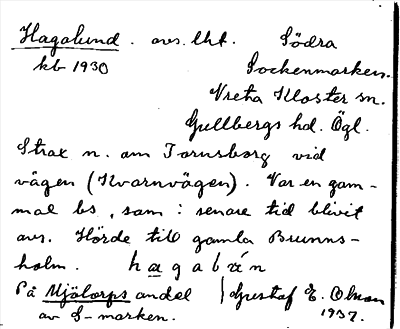 Hagalund. avs. lht. Södra
kb 1930 Sockenmarken.
Vreta Kloster sn.
Gullbergs hd. Ögl.
Strax n. om Tornsborg vid
vägen (Kvarnvägen). Var en gam-
mal bs, som i senare tid blivit
avs. Hörde till gamla Brunns-
holm.
På Mjölorps andel } Gustaf E. Olson
av S-marken. 1937.